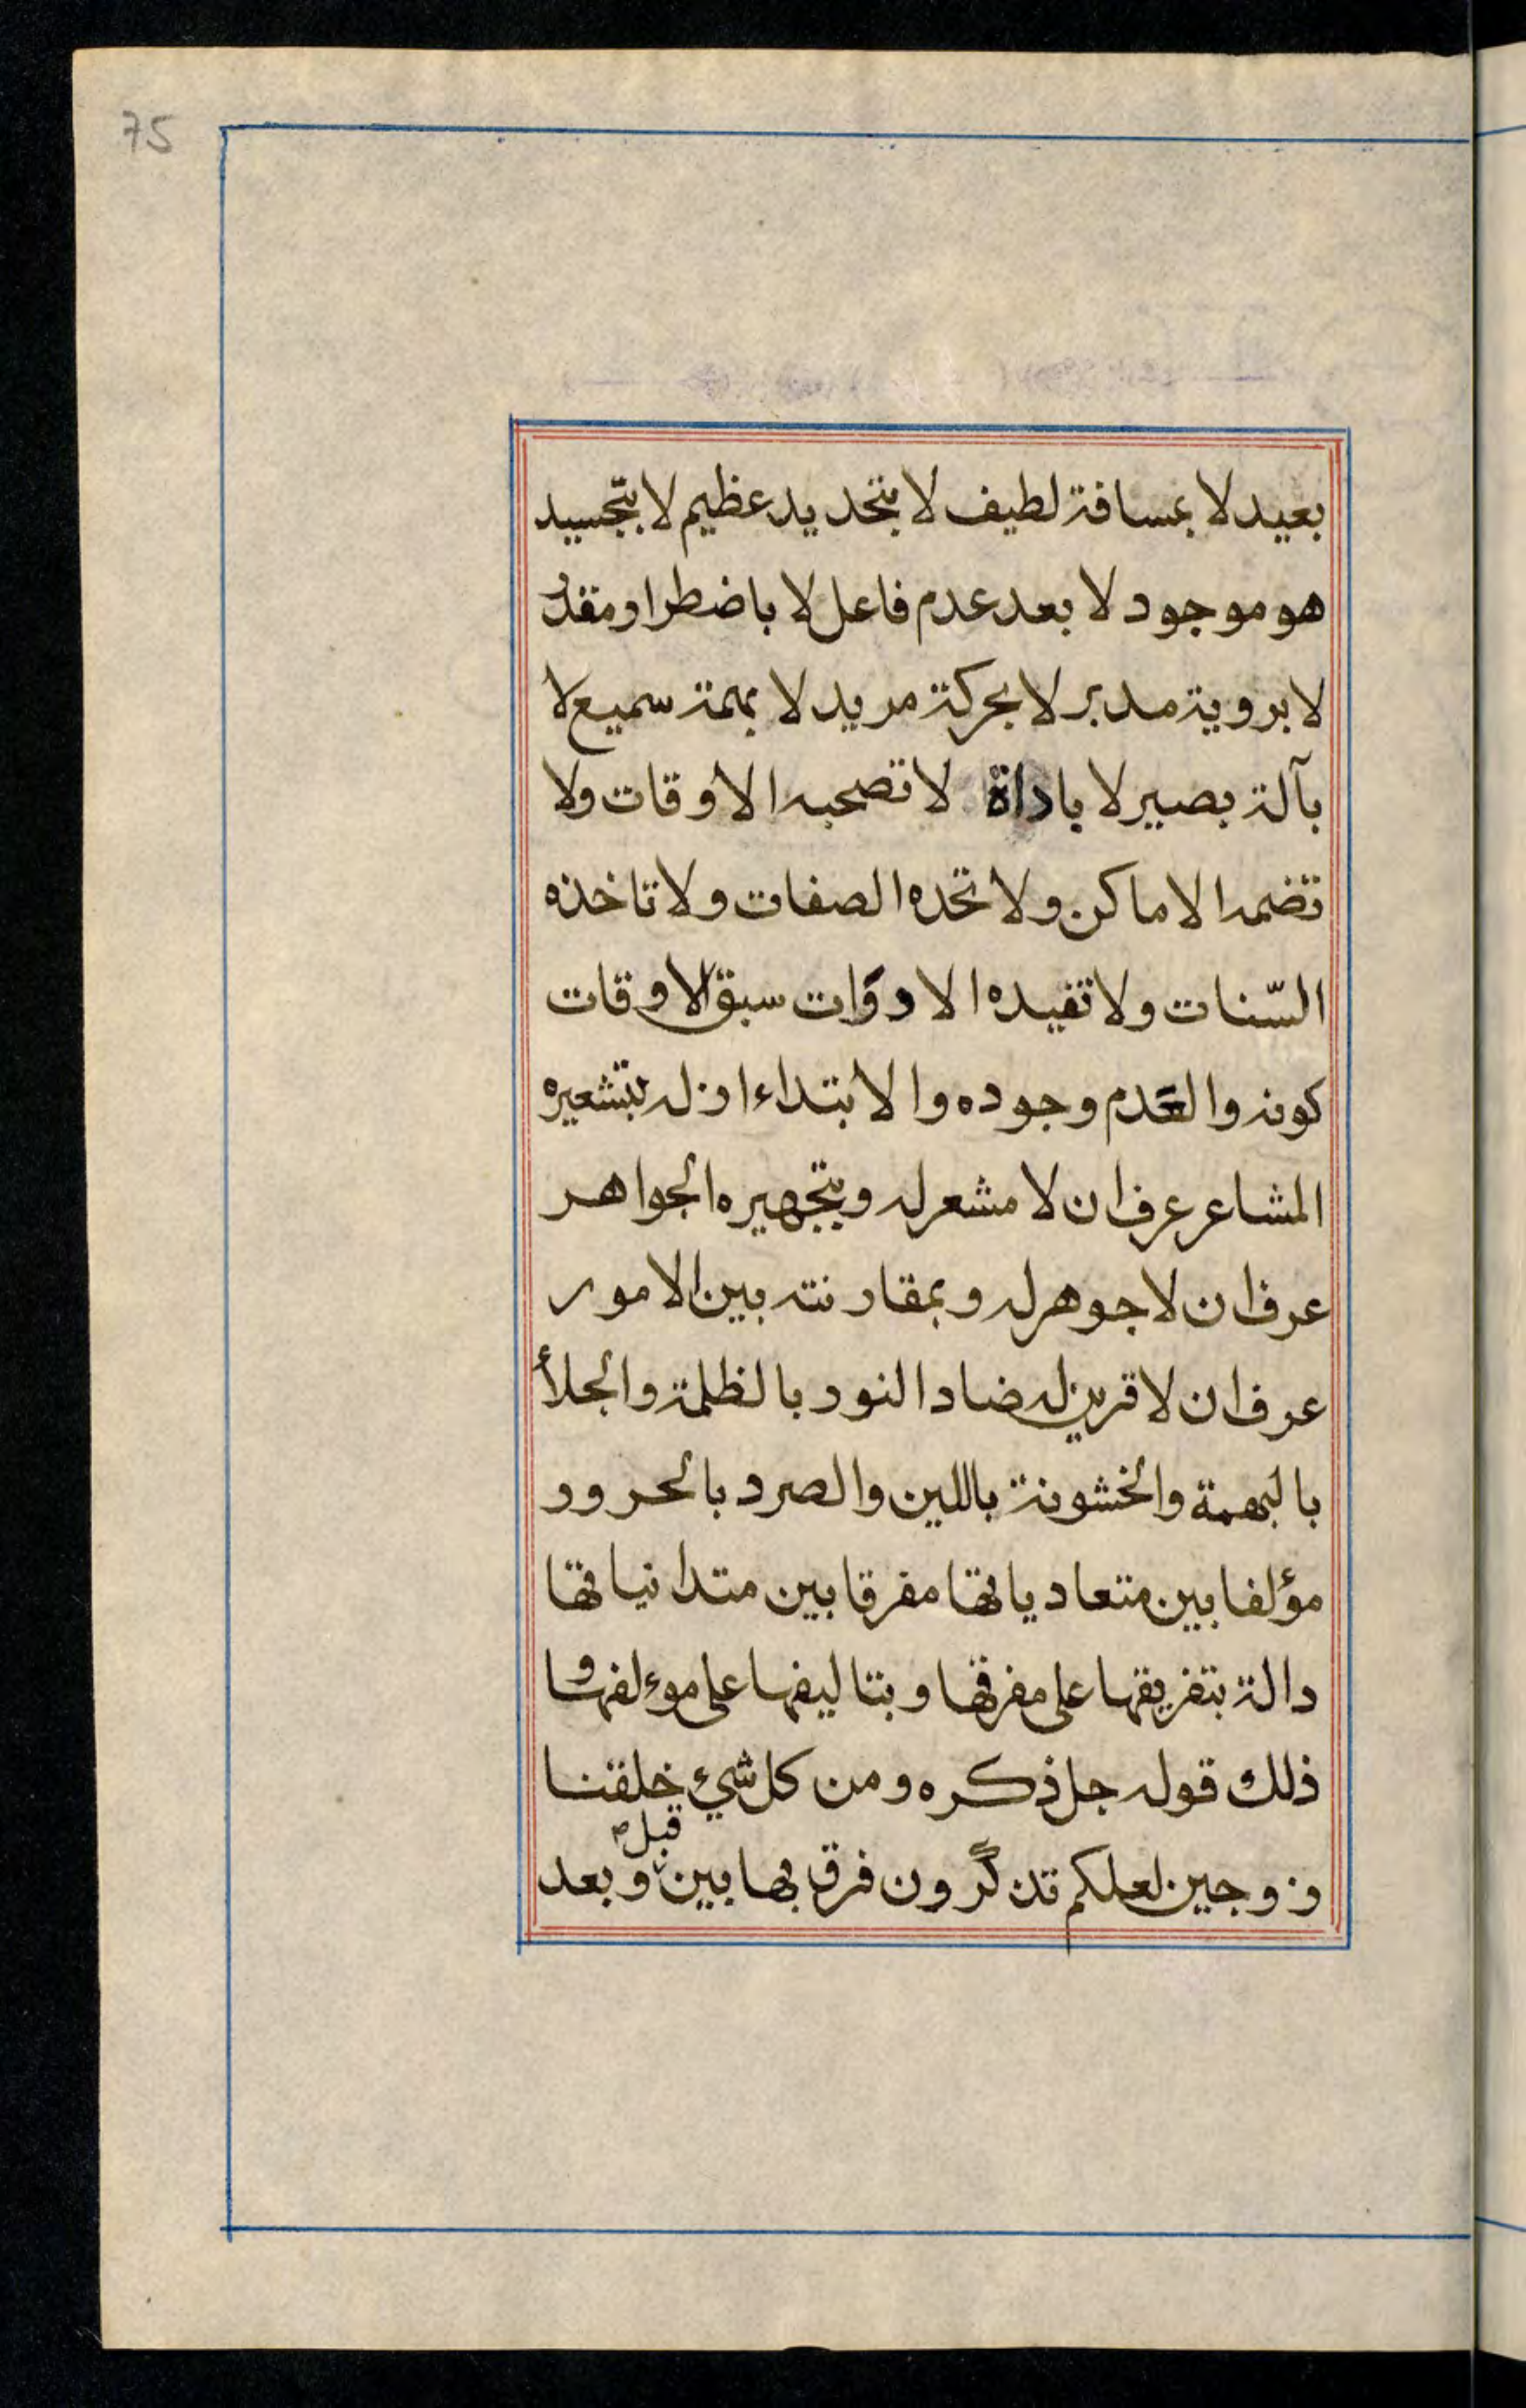 75
بعيد لا بمسافة لطيف لا بتحديد عظيم لا بتجسيد
هو موجود لا بعد عدم فاعل لا باضطرار مقدر
لا بروية مدبر لا بحركة مريد لا بهمة سميع لا
بآلة بصير لا باداة لا تصحبه الاوقات ولا
تضمه الاماكن ولا تحده الصفات ولا تاخذه
السّنات ولا تفيده الادوات سبق الاوقات
كونه والعدم وجوده والابتداء ازله بتشعيره
المشاعر عرف ان لا مشعر له وبتجهيره الجواهر
عرف ان لا جوهر له وبمقارنته بين الامور
عرف ان لا قرين له ضاد النور بالظلمة والجلأ
بالبهمة والخشونة باللين والصرد بالحرور
مؤلفا بين متعادياتها مفرقا بين متدانياتها
دالة بتفريقها على مفرقها وبتاليفها على موءلفها و
ذلك قوله جل ذكره ومن كل شيء خلقنا
زوجين لعلكم تذكّرون فرق بها بين قبل وبعد